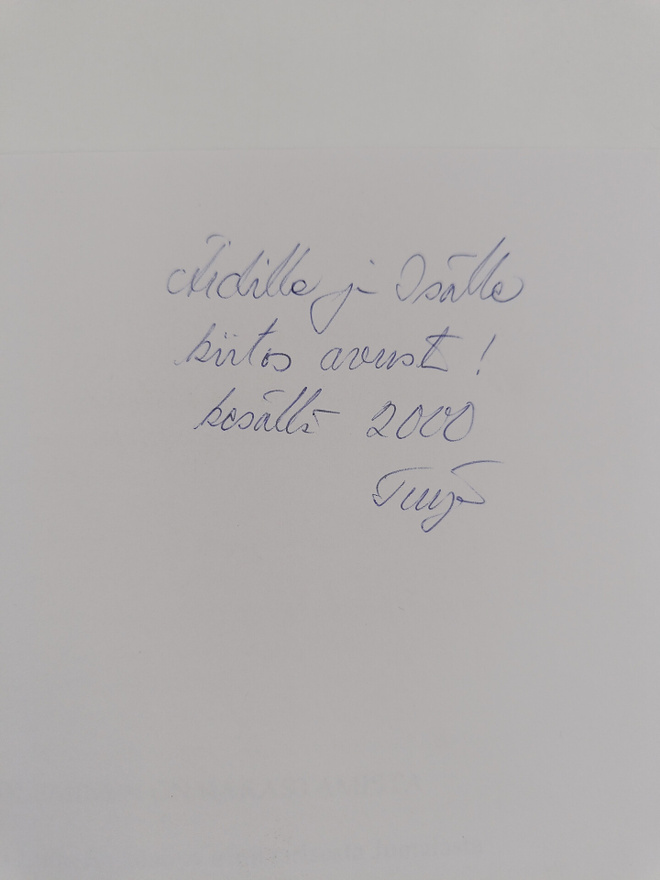 Äidille ja Isälle
kiitos avusta!
kesällä 2000